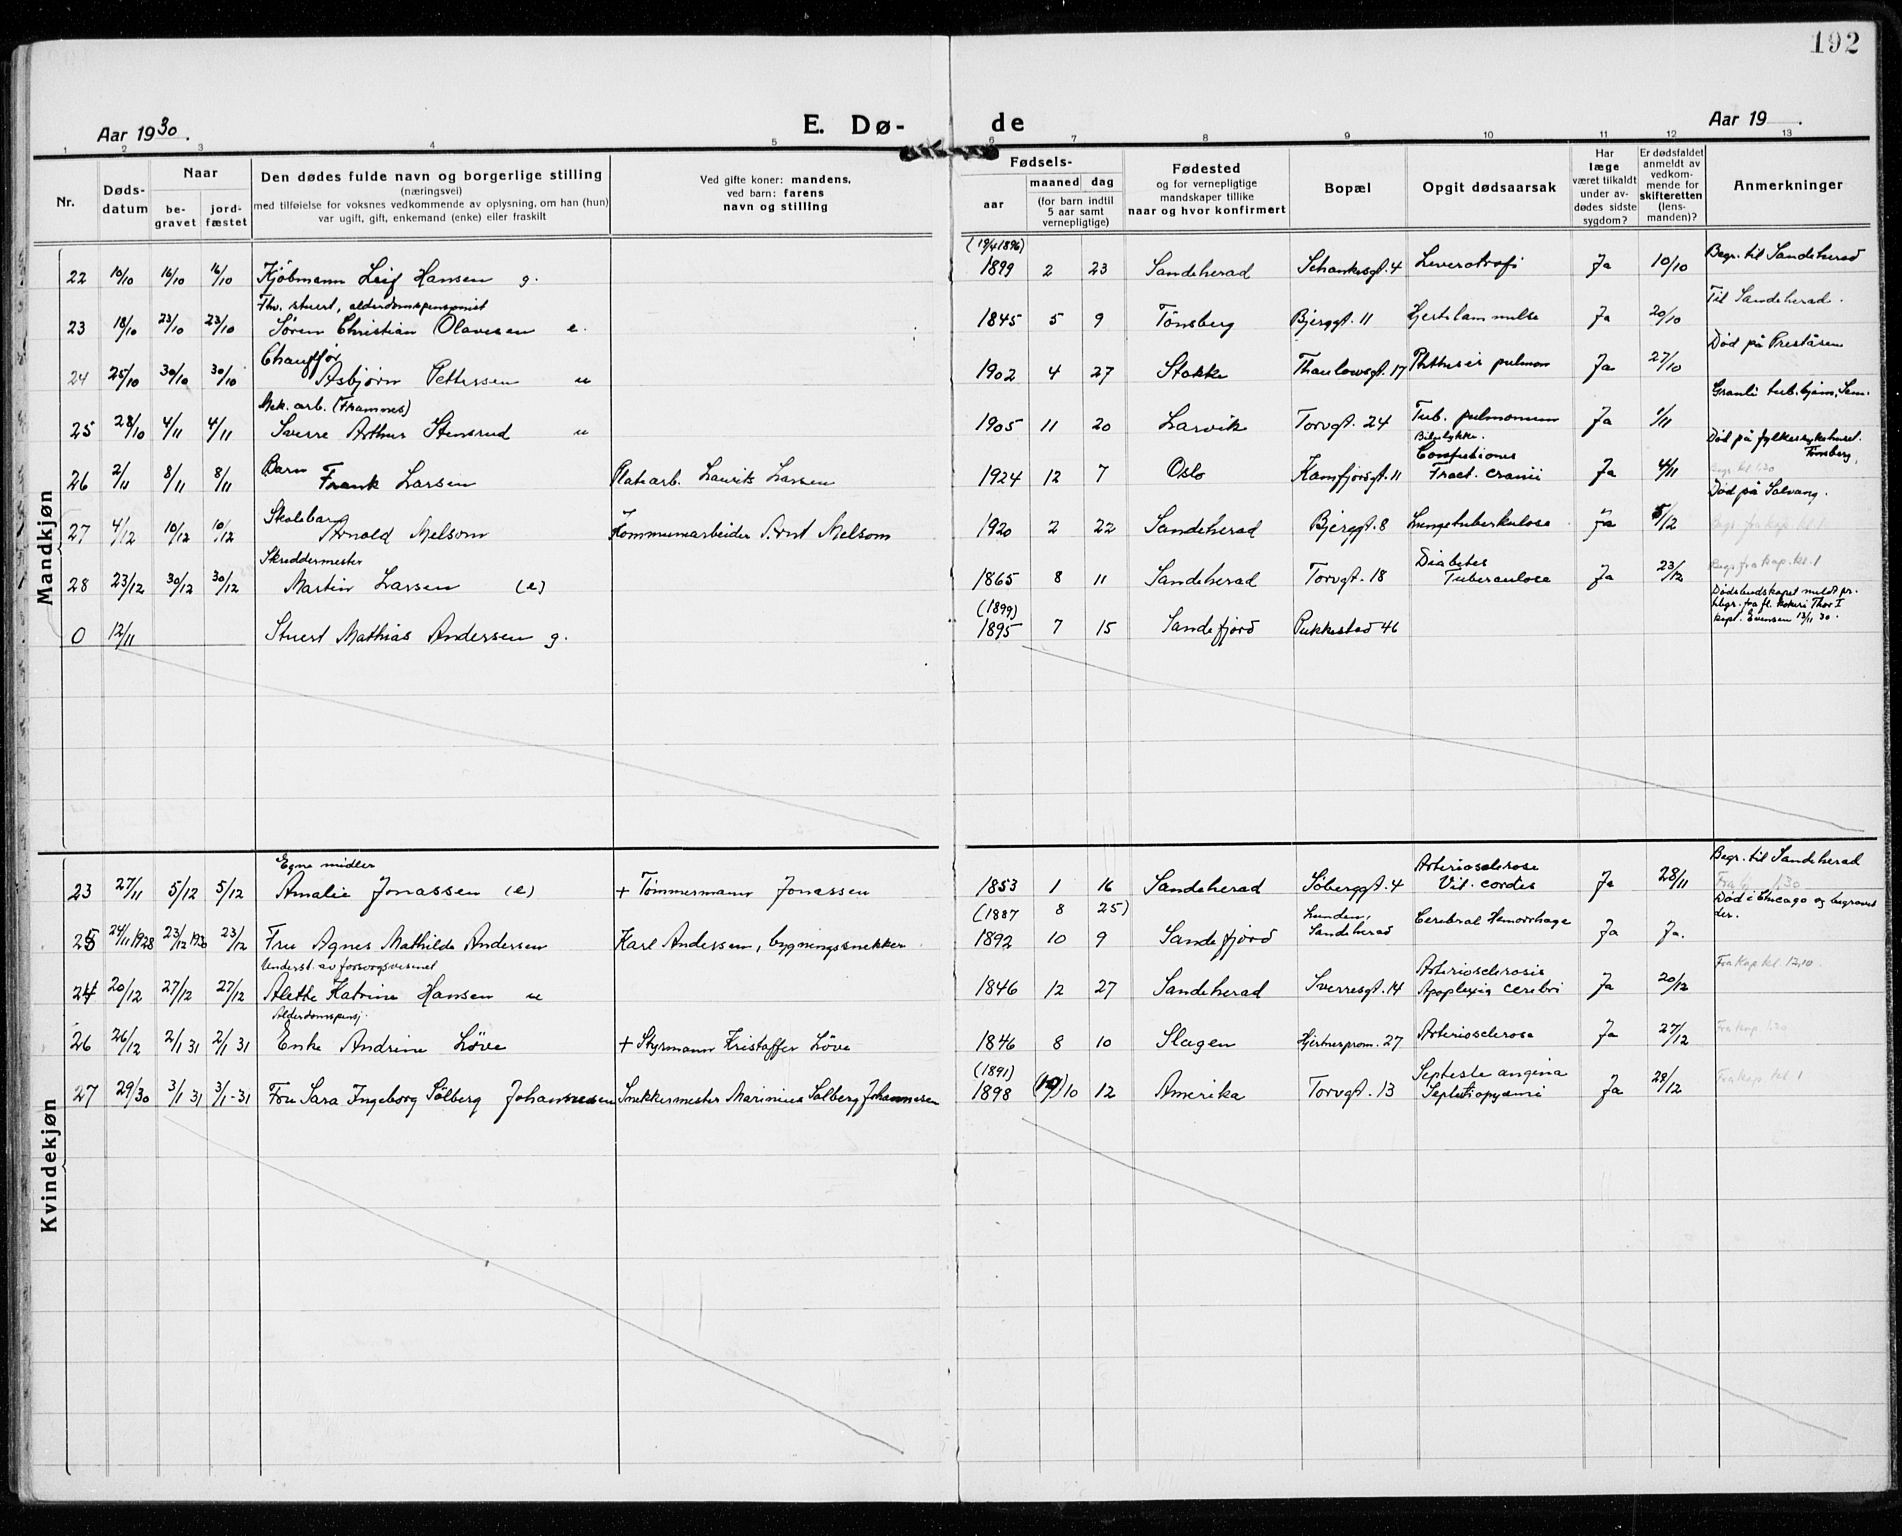 192
Aar 1930. E. Dø- de Aar 19 .
1 2 3 4 5 6 7 8 9 10 11 12 13
Nr. Døds-datum Naar be-gravet jord-fæstet Den dødes fulde navn og borgerlige stilling (næringsvei) med tilføielse for voksnes vedkommende av oplysning, om han (hun) var ugift, gift, enkemand (enke) eller fraskilt Ved gifte koner: mandens, ved barn: farens navn og stilling Fødsels- aar maaned dag (for barn indtil 5 aar samt vernepligtige) Fødested og for vernepligtige mandskaper tillike naar og hvor konfirmert Bopæl Opgit dødsaarsak Har læge været tilkaldt under av-dødes sidste sygdom? Er dødsfaldet anmeldt av vedkom-mende for skifteretten (lens-manden)? Anmerkninger
Mandkjøn
(19/4 1896)
22 10/10 16/10 16/10 Kjøbmann Leif Hansen g. 1899 2 23 Sandeherad Schankesgt. 4 Leveratrofi Ja 10/10 Begr. til Sandeherad
Fhv. stuert, alderdomspensionist
23 18/10 23/10 23/10 Søren Christian Olavesen e. 1845 5 9 Tønsberg Bjerggt. 11 Hjertelammelse Ja 20/10 Til Sandeherad.
Chauffør
24 25/10 30/10 30/10 Asbjørn Pettersen u 1902 4 27 Stokke Thaulowsgt. 17 Phthisis pulmon Ja 27/10 Død på Preståsen
Mek. arb. (Framnes)
25 28/10 4/11 4/11 Sverre Arthur Stensrud u 1905 11 20 Larvik Torvgt. 24 Tub. pulmonum Ja 1/11 Granli tub.hjem, Sem.
Barn
26 2/11 8/11 8/11 Frank Larsen Platearb. Laurits Larsen 1924 12 7 Oslo Kamfjordgt. 11 Bilulykke. Contutiones Fract. cranii Ja 4/11 Død på fylkessykehuset. Tønsberg.
Skolebarn
27 4/12 10/12 10/12 Arnold Melsom Kommunearbeider Arnt Melsom 1920 2 22 Sandeherad Bjerggt. 8 Lungetuberkulose Ja 5/12 Død på Solvang. Begr. fra kap. kl. 1
Skreddermester
28 23/12 30/12 30/12 Martin Larsen (e) 1865 8 11 Sandeherad Torvgt. 18 Diabetes Tuberculose Ja 23/12 Begr. fra kap. kl. 1
(1899)
0 12/11 Stuert Mathias Andersen g. 1895 7 15 Sandefjord Pukkestad 46 Dødsbudskapet meldt pr. tlgr. fra fl. kokeri Thor I kapt. Evensen 12/11 30.
Kvindekjøn
Egne midler
23 27/11 5/12 5/12 Amalie Jonassen (e) + Tømmermann Jonassen 1853 1 16 Sandeherad Søberggt. 4 Arteriosclerose Vit. cordis Ja 28/11 Begr. til Sandeherad
(1887 8 25)
25 24/11 1928 23/12 1930 23/12 Fru Agnes Mathilde Andersen Karl Andersen, bygningssnekker 1892 10 9 Sandefjord Lunden, Sandeherad Cerebral Hemorrhage Ja Ja. Død i Chicago og begravet der.
Underst. av forsorgsvesenet
24 20/12 27/12 27/12 Alette Katrine Hansen u 1846 12 27 Sandeherad Sverresgt. 14 Arteriosclerosis Apoplexia cerebri Ja 20/12 Fra Kap kl. 12,10
Alderdomspensj.
26 26/12 2/1 31 2/1 31 Enke Andrine Løve + Styrmann Kristoffer Løve 1846 8 10 Slagen Hjertnesprom. 27 Arteriosclerose Ja 27/12 Fra kap. 1.30
(1891)
27 29/30 3/1 31 3/1-31 Fru Sara Ingeborg Sølberg Johannessen Snekkermester Marinius Solberg Johannesen 1898 10 12 Amerika Torvgt. 13 Septiske angina Septicopyæmi Ja 29/12 Fra Kap kl 1